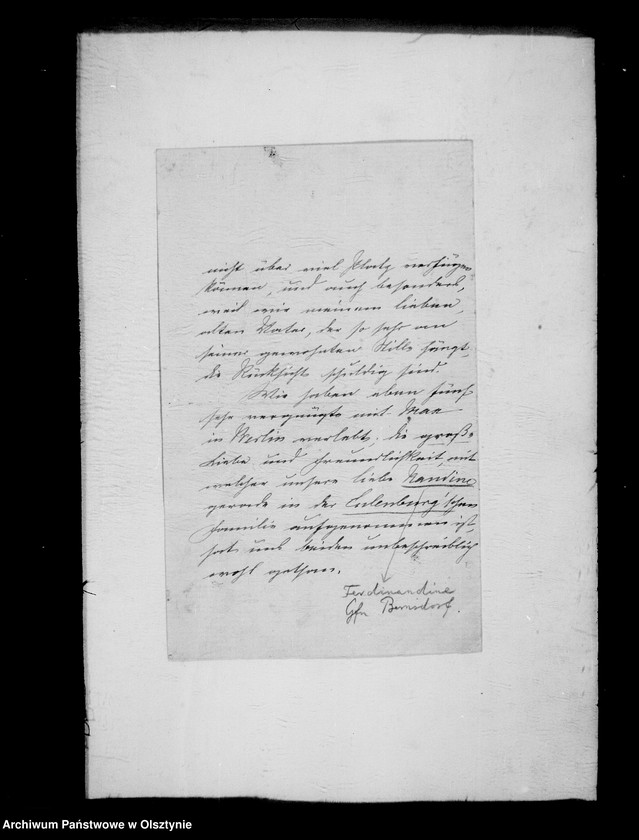 nicht über viel Platz verfügen
können, und auch besonders,
weil wir meinem lieben,
alten Vater, der so sehr an
seiner gewohnten Stille hängt,
die Rücksicht schuldig sind.
Wir haben eben fünf
sehr vergnügte mit Max
in Berlin verlebt; die große
Liebe und Freundlichkeit, mit
welcher unsere liebe Nandine
gerade in der Eulenburg'schen
Familie aufgenommen ist,
hat uns beiden unbeschreiblich
wohl gethan.
Ferdinandine
Gfn Bernsdorf.
Archiwum Państwowe w Olsztynie